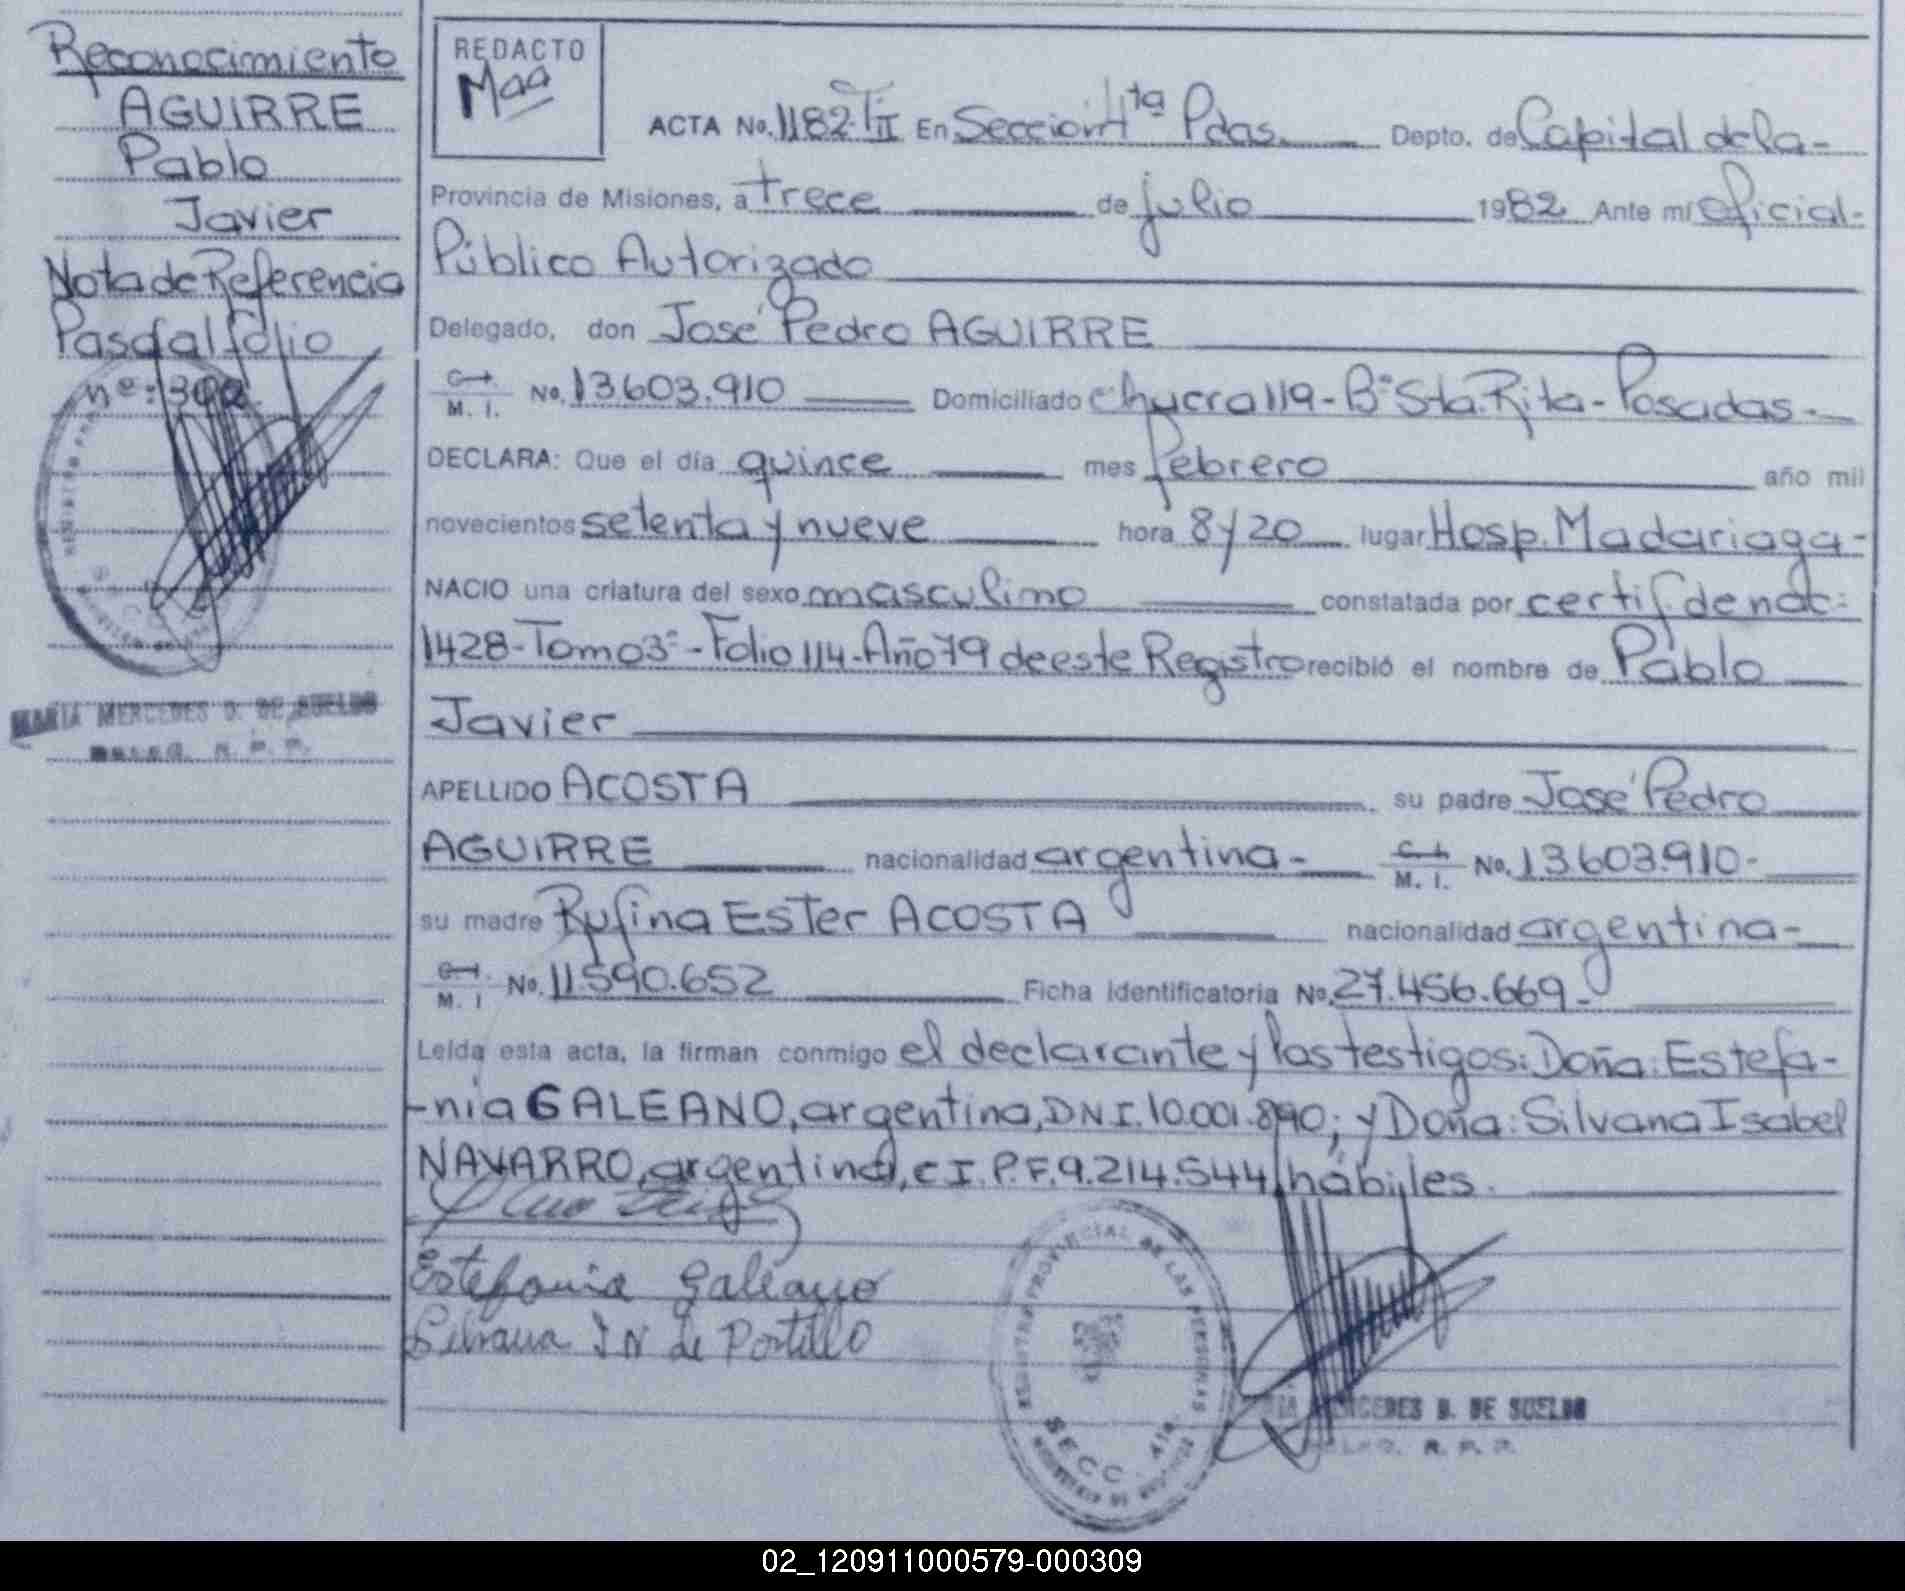 Reconocimiento
AGUIRRE
Pablo
Javier
Nota de Referencia
Pasa al folio
nº: 302
MARIA MERCEDES D. DE SUELDO
DELEG. R. P. P.
REDACTO
Maa
ACTA No. 1182 TII En Sección 4ta Pdas. Depto. de Capital de la-
Provincia de Misiones, a trece de julio 1982 Ante mí Oficial-
Público Autorizado
Delegado, don José Pedro AGUIRRE
C. I. M. I. No. 13.603.910 Domiciliado Chucro 119-Bº Sta. Rita-Posadas-
DECLARA: Que el día quince mes febrero año mil
novecientos setenta y nueve hora 8 y 20 lugar Hosp. Madariaga-
NACIO una criatura del sexo masculino constatada por certif. de nac:
1428-Tomo 3º-Folio 114-Año 79 de este Registro recibió el nombre de Pablo
Javier
APELLIDO ACOSTA su padre José Pedro
AGUIRRE nacionalidad argentina- C. I. M. I. No. 13.603.910-
su madre Rufina Ester ACOSTA nacionalidad argentina-
C. I. M. I No. 11.590.652 Ficha Identificatoria No. 27.456.669-
Leída esta acta, la firman conmigo el declarante y los testigos: Doña: Estefa-
-nia GALEANO, argentina, DNI. 10.001.890; y Doña: Silvana Isabel
NAVARRO, argentina, C.I.P.F. 9.214.544, hábiles.
Estefania Galeano
Silvana I N de Portillo
REGISTRO PROVINCIAL DE LAS PERSONAS
SECC. 4ta
MERCEDES D. DE SUELDO
R. P. P.
02_120911000579-000309